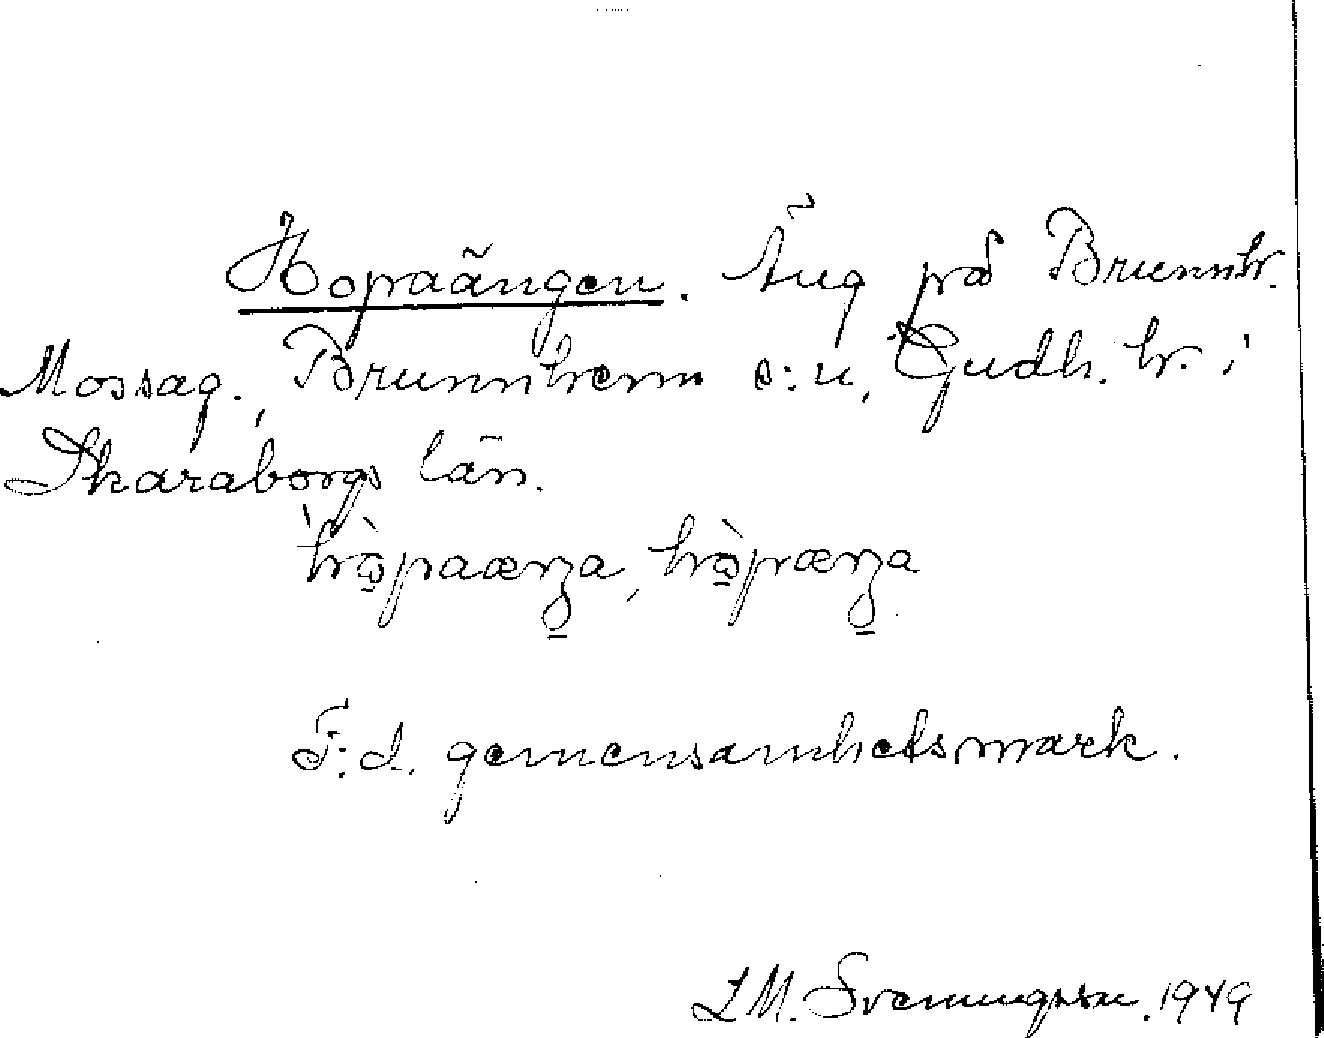 Hopaängen. Äng på Brunnh.
Mossag., Brunnhem s:n, Gudh. hr. i
Skaraborgs län.
hòpaæŋa, hòpæŋa
F.d. gemensamhetsmark.
L M. Sveningsson. 1949